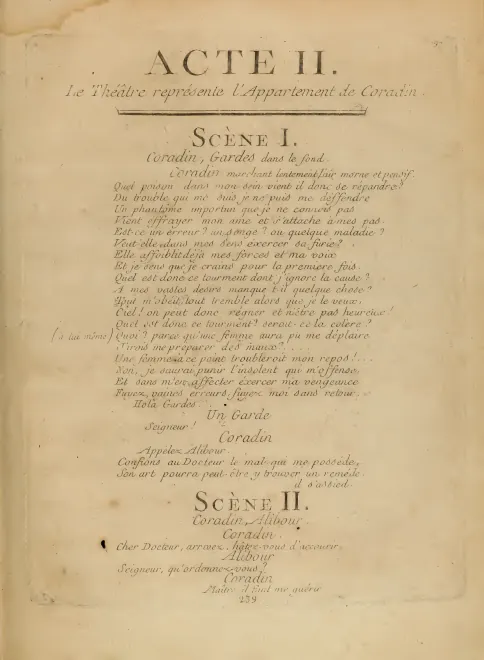 ACTE II.
Le Théâtre représente l'Appartement de Coradin.
SCÈNE I.
Coradin, Gardes dans le fond.
Coradin marchant lentement, l'air morne et pensif.
Quel poison dans mon sein vient il donc se répandre?
Du trouble qui me suis je ne puis me déffendre
Un phantôme importun que je ne connois pas
Vient effrayer mon ame et s'attache à mes pas.
Est-ce un erreur? un songe? ou quelque maladie?
Veut-elle dans mes sens exercer sa furie?
Elle affoiblit déja mes forces et ma voix
Et je sens que je crains pour la premiere fois.
Quel est donc ce tourment dont j'ignore la cause?
A mes vastes desirs manque t-il quelque chose?
Tout m'obéit, tout tremble alors que je le veux,
Ciel! on peut donc régner et n'être pas heureux!
Quel est donc ce tourment? seroit-ce la colère?
(à lui même) Quoi? parce qu'une femme aura pu me déplaire
J'irois me préparer des maux?...
Une femme à ce point troubleroit mon repos!...
Non, je saurai punir l'insolent qui m'offense,
Et sans m'en affecter exercer ma vengeance
Fuyez, vaines erreurs, fuyez moi sans retour.
Holà, Gardes.
Un Garde
Seigneur!
Coradin
Appelez Alibour.
Confions au Docteur le mal qui me possède,
Son art pourra peut-être y trouver un remede.
il s'assied.
SCÈNE II.
Coradin, Alibour.
Coradin.
Cher Docteur, arrivez, hâtez-vous d'accourir.
Alibour
Seigneur, qu'ordonnez-vous?
Coradin
Maître il faut me guérir
239